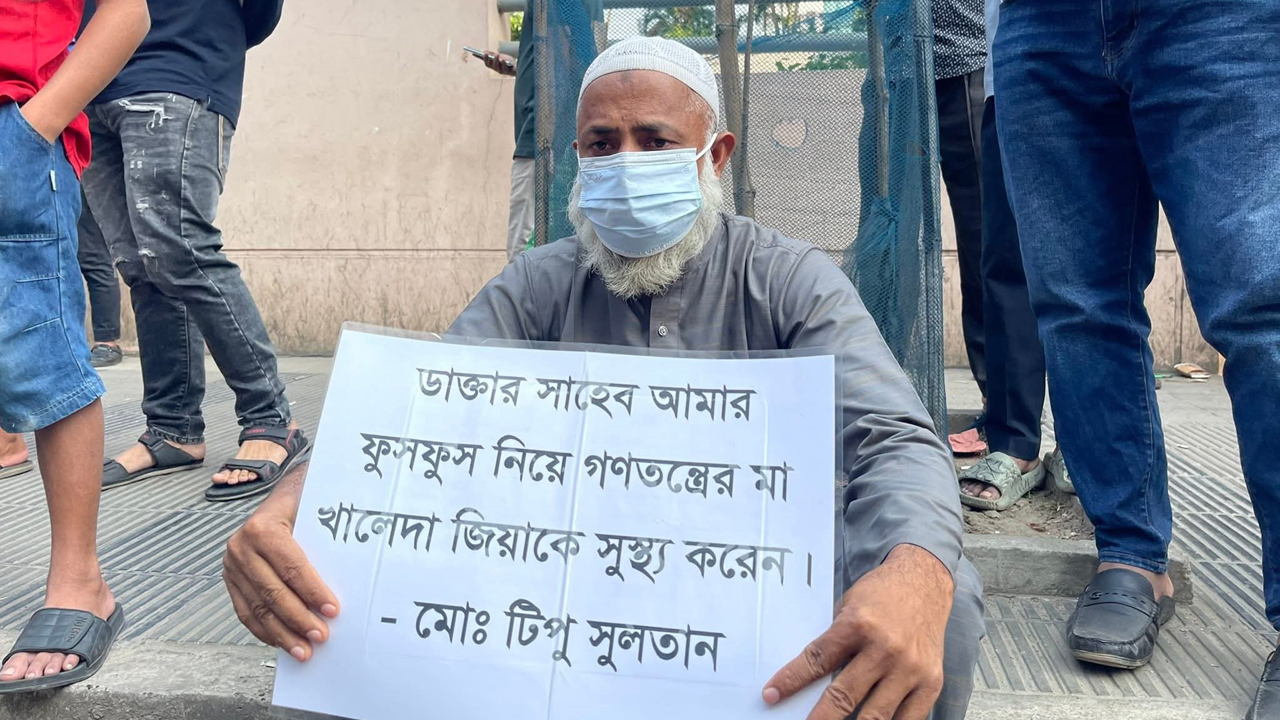 ডাক্তার সাহেব আমার
ফুসফুস নিয়ে গণতন্ত্রের মা
খালেদা জিয়াকে সুস্থ্য করেন।
- মোঃ টিপু সুলতান